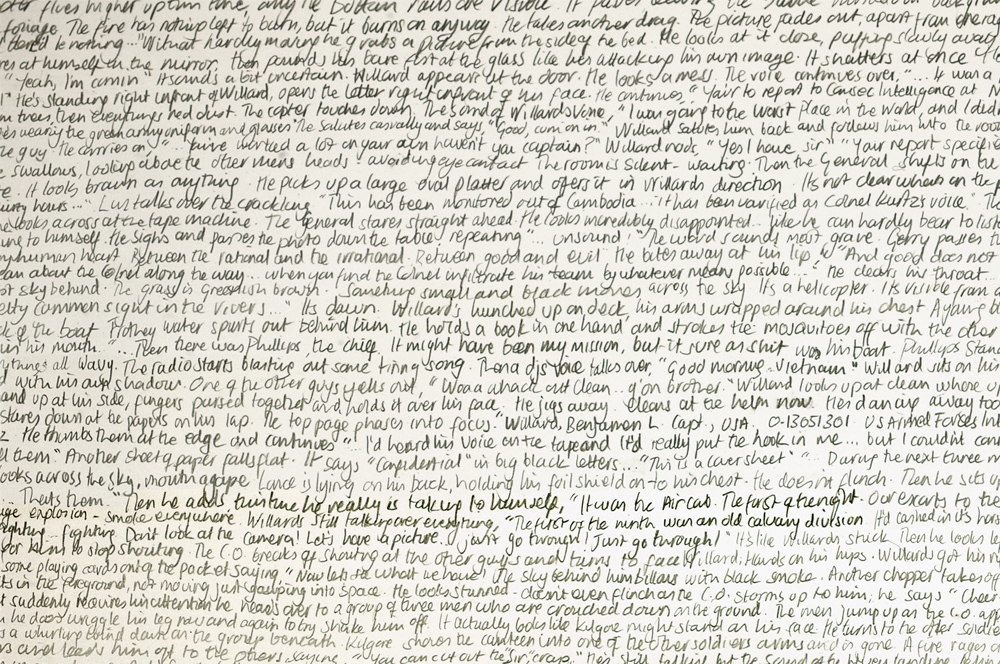 flies higher up this time, any the bottom rails are visible. It
foliage. The fire has nothing left to burn, but it burns on anyway. He takes another drag. The picture fades out, apart from
is nothing... "Without hardly moving he grabs a picture from the side of the bed. He looks at it close, puffing slowly away
at himself in the mirror, then pounds his bare fist at the glass like hes attacking his own image. It shatters at once
"Yeah, I'm comin" It sounds a bit uncertain. Willard appears at the door. He looks a mess. The voice continues over, "... It was a
He's standing right infront of Willard, opens the letter right infront of his face. He continues, "Your to report to Comsec Intelligence at N
trees, then everything's red dust. The copter touches down, The sound of Willards voice, "I was going to the worst place in the world, and I didn
wearing the green army uniform and glasses. He salutes casually and says, "Good, come on in." Willard salutes him back and follows him into the roo
guy. He carries on "...have worked a lot on your own haven't you captain?" Willard nods, "Yes I have sir." "Your report specifie
swallows, looking above the other mens heads - avoiding eye contact. The room is silent - waiting. Then the General shifts on the
. It looks brown as anything. He picks up a large oval platter and offers it in Willards direction. It's not clear whats on the p
hours..." Luis talks over the crackling "This has been monitored out of Cambodia... it has been varified as Colnel Kurtz's voice." The
looks across at the tape machine. The General stares straight ahead. He looks incredibly disappointed... like he can hardly bear to list
to himself. He sighs and passes the photo down the table, repeating "... unsound." The word sounds most grave. Gerry passes t
human heart. Between the rational and the irrational. Between good and evil. He bites away at his lip, "And good does not
about the Colnel along the way... when you find the Colnel infiltrate his team by whatever means possible..." He clears his throat
sky behind. The grass is greenish brown. Something small and black moves across the sky. Its a helicopter. It's visible from a
common sight in the rivers..." Its dawn. Willard's hunched up on deck, his arms wrapped around his chest. A young
of the boat. Frothey water spurts out behind him. He holds a book in one hand and strokes the mosquitoes off with the other
in his mouth. "... Then there was Phillips, the chief. It might have been my mission, but it sure as shit was his boat. Phillips Stan
all wavy. The radio starts blasting out some tring song. Then a djs voice talks over, "Good morning Vietnam" Willard sits on his
with his own shadow. One of the other guys yells out, "Woaa whack out Clean... g'on brother." Willard looks up at Clean where
and up at his side, fingers pursed together and holds it over his face. He jigs away. Cleans at the helm now. He's dancing away too
Stares down at the papers on his lap. The top page phases into focus. Willard, Benjamen L. Capt., USA. 0-13651301. US Armed Forces In
. He thumbs them at the edge and continues "...I'd heard his voice on the tape and it'd really put the hook in me... but I couldnt con
them." Another sheet of paper falls flat. It says "Confidential" in big black letters... "This is a cover sheet" "... During the next three m
looks across the sky, mouth agape. Lance is lying on his back, holding his foil shield on to his chest. He doesn't flinch. Then he sits up
... Thats them." Then he adds, this time he really is talking to himself, "It was the Air Cab. The first of the night. Our escorts to the
explosion - smoke everywhere. Willards still talking over everything, "The first of the ninth was an old calvary division. It'd cashed in its hors
fighting... fighting. Dont look at the camera! Let's have a picture... just go through! Just go through!" It's like Willards stuck. Then he looks le
to stop shouting. The C.O. breaks off shouting at the other guys and turns to face Willard, Hands on his hips. Willards got his r
some playing cards out of the packet saying "Now lets see what we have." The sky behind him billows with black smoke. Another chopper takes of
in the foreground, not moving just gawping into space. He looks stunned - doesn't even flinch as the C.O. storms up to him, he says "Cheer
suddenly requires his attention he heads over to a group of three men who are crouched down on the ground. The men jump up as the C.O. app
he does wriggle his leg now and again to try shake him off. It actually looks like Kilgore might stand on his face. He turns to the other soldie
a whirling behind dark on the group beneath. Kilgore shoves the canteen into one of the other soldiers arms and is gone. A fire rages
and leads him off to the others saying, "You can cut out the 'sir' crap." He's still talking but the